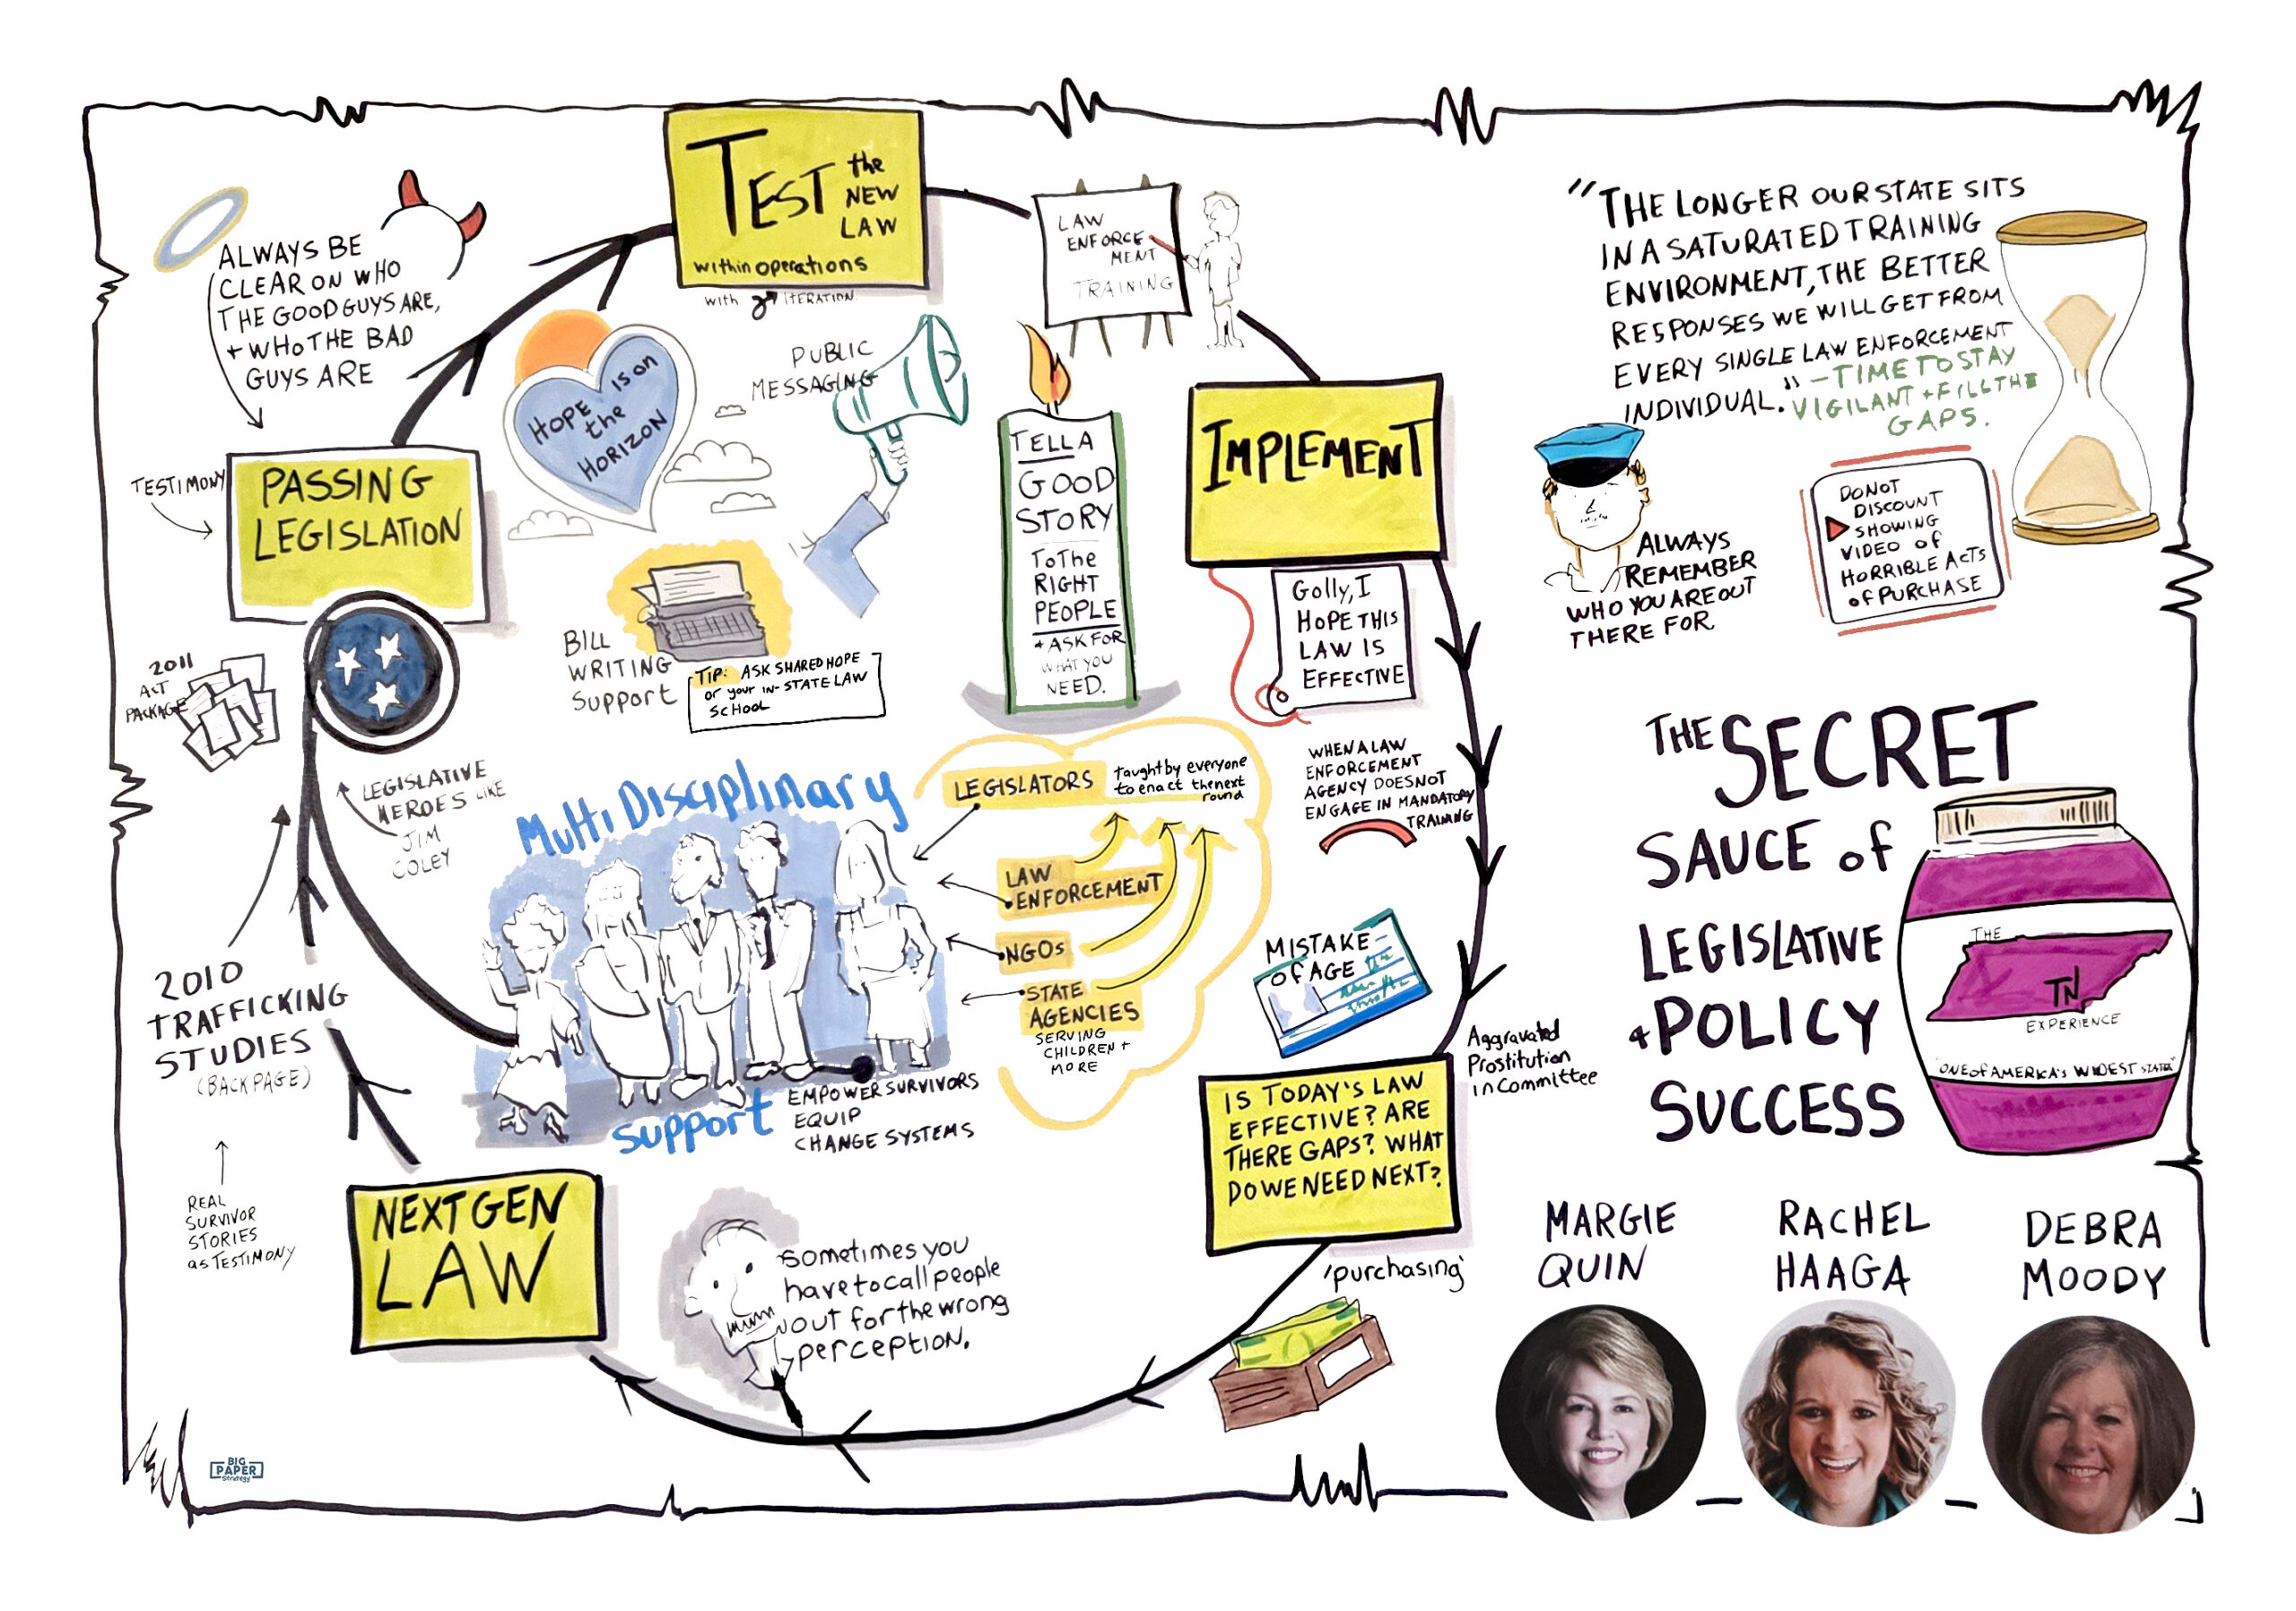 TEST the
NEW
LAW
within operations
with
ITERATION
ALWAYS BE
CLEAR ON WHO
THE GOOD GUYS ARE,
+ WHO THE BAD
GUYS ARE
LAW
ENFORCE
MENT
TRAINING
HOPE is on
the
HORIZON
PUBLIC
MESSAGING
TESTIMONY
PASSING
LEGISLATION
BILL
WRITING
Support
TIP: ASK SHARED HOPE
or your IN-STATE LAW
SCHOOL
TELL A
GOOD
STORY
To The
RIGHT
PEOPLE
+ ASK FOR
WHAT YOU
NEED.
IMPLEMENT
Golly, I
HOPE THIS
LAW IS
EFFECTIVE
WHEN A LAW
ENFORCEMENT
AGENCY DOES NOT
ENGAGE IN MANDATORY
TRAINING
2011
ACT
PACKAGE
LEGISLATIVE
HEROES LIKE
JIM
COLEY
2010
TRAFFICKING
STUDIES
(BACKPAGE)
REAL
SURVIVOR
STORIES
as TESTIMONY
Multi Disciplinary
support
EMPOWER SURVIVORS
EQUIP
CHANGE SYSTEMS
LEGISLATORS
taught by everyone
to enact the next
round
LAW
ENFORCEMENT
NGOs
STATE
AGENCIES
SERVING
CHILDREN +
MORE
MISTAKE
OF AGE
Aggravated
Prostitution
in Committee
IS TODAY'S LAW
EFFECTIVE? ARE
THERE GAPS? WHAT
DO WE NEED NEXT?
'purchasing'
sometimes you
have to call people
out for the wrong
perception.
NEXT GEN
LAW
BIG
PAPER
Strategy
"THE LONGER OUR STATE SITS
IN A SATURATED TRAINING
ENVIRONMENT, THE BETTER
RESPONSES WE WILL GET FROM
EVERY SINGLE LAW ENFORCEMENT
INDIVIDUAL." - TIME TO STAY
VIGILANT + FILL THE
GAPS.
ALWAYS
REMEMBER
WHO YOU ARE OUT
THERE FOR
DO NOT
DISCOUNT
SHOWING
VIDEO of
HORRIBLE ACTS
of PURCHASE
THE SECRET
SAUCE of
LEGISLATIVE
+ POLICY
SUCCESS
THE
TN
EXPERIENCE
"ONE of AMERICA'S WIDEST STATES"
MARGIE
QUIN
RACHEL
HAAGA
DEBRA
MOODY